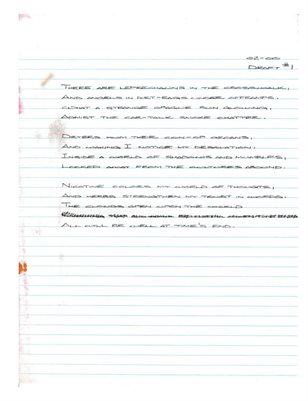 02-00
DRAFT #1
THERE ARE LEPRECHAUNS IN THE CROSSWALK,
AND ANGELS IN
WHAT A STRANGE OPAQUE SUN GLOWING,
AMIDST THE CAR-TALK SMOKE CHATTER.
DRYERS HUM THEIR COIN-OP ARGANS,
AND MAKING I NOTICE MY DESOLATION.
INSIDE A WORLD OF SHADOWS AND MUMBLES,
LOCKED AWAY FROM THE CULTURES AROUND.
NICOTINE COLORS MY WORLD OF THOUGHTS,
AND HERBS STRENGTHEN MY TRUST IN WORDS.
THE CLOUDS OPEN UPON THE WORLD
ALL WILL BE WELL AT TIME'S END.